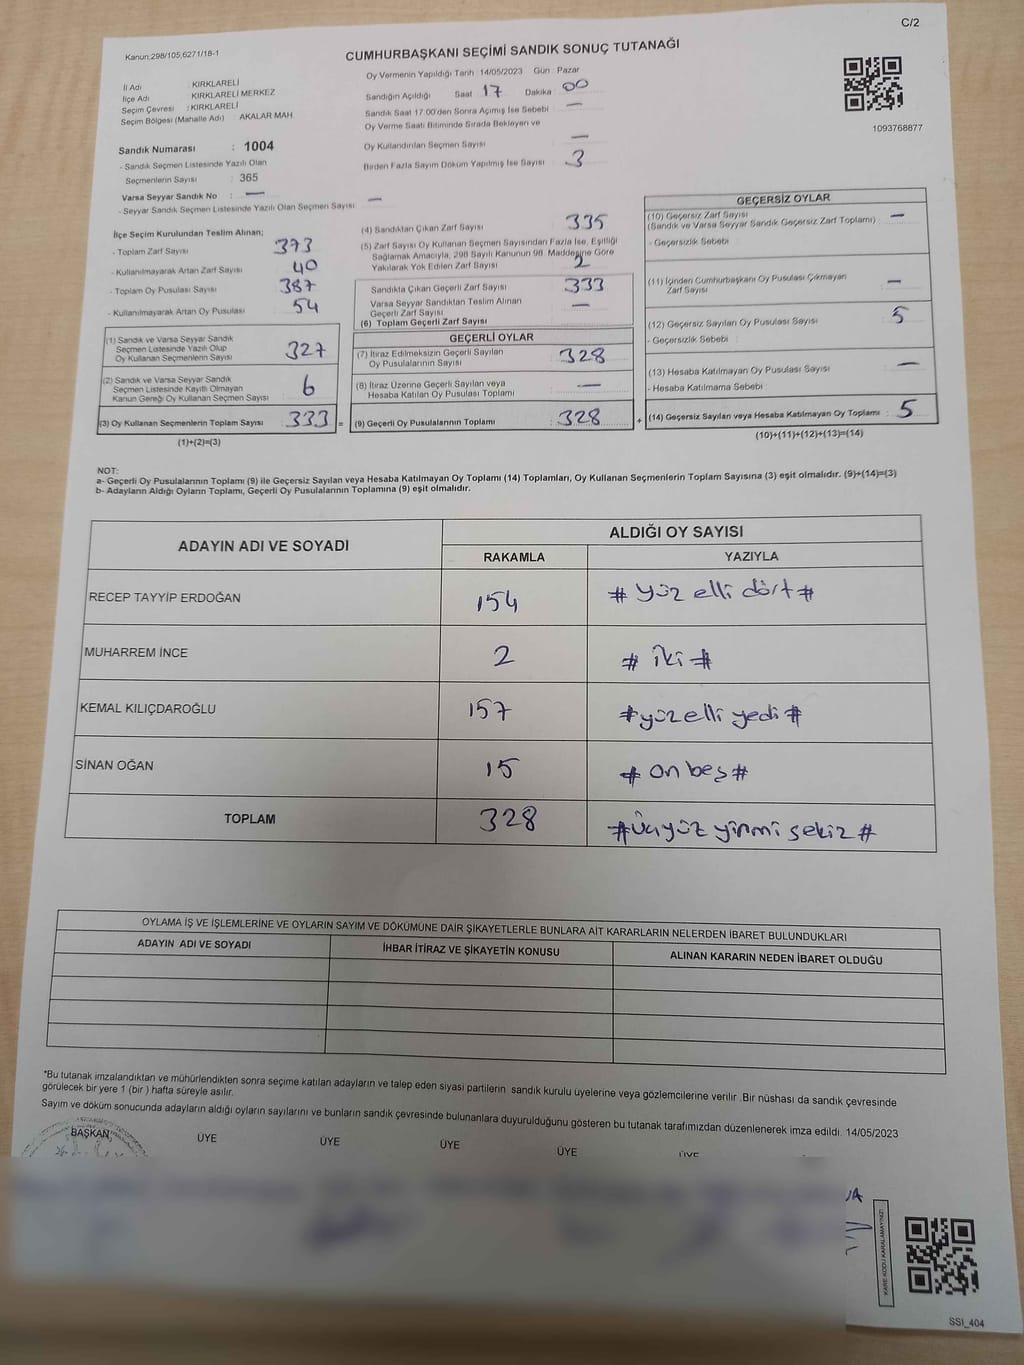 C/2
Kanun:298/105,6271/18-1
CUMHURBAŞKANI SEÇİMİ SANDIK SONUÇ TUTANAĞI
İl Adı : KIRKLARELİ
İlçe Adı KIRKLARELİ MERKEZ
Seçim Çevresi : KIRKLARELİ
Seçim Bölgesi (Mahalle Adı) : AKALAR MAH.
Sandık Numarası : 1004
- Sandık Seçmen Listesinde Yazılı Olan
Seçmenlerin Sayısı : 365
Varsa Seyyar Sandık No : —
- Seyyar Sandık Seçmen Listesinde Yazılı Olan Seçmen Sayısı : —
Oy Vermenin Yapıldığı Tarih : 14/05/2023 Gün : Pazar
Sandığın Açıldığı Saat 17 Dakika : 00
Sandık Saat 17:00'den Sonra Açımış İse Sebebi —
Oy Verme Saati Bitiminde Sırada Bekleyen ve
Oy Kullandırılan Seçmen Sayısı —
Birden Fazla Sayım Döküm Yapılmış İse Sayısı : 3
1093768877
İlçe Seçim Kurulundan Teslim Alınan;
- Toplam Zarf Sayısı : 373
- Kullanılmayarak Artan Zarf Sayısı : 40
- Toplam Oy Pusulası Sayısı : 387
- Kullanılmayarak Artan Oy Pusulası : 54
(1) Sandık ve Varsa Seyyar Sandık
Seçmen Listesinde Yazılı Olup
Oy Kullanan Seçmenlerin Sayısı : 327
(2) Sandık ve Varsa Seyyar Sandık
Seçmen Listesinde Kayıtlı Olmayan
Kanun Gereği Oy Kullanan Seçmen Sayısı : 6
(3) Oy Kullanan Seçmenlerin Toplam Sayısı : 333 =
(1)+(2)=(3)
(4) Sandıktan Çıkan Zarf Sayısı : 335
(5) Zarf Sayısı Oy Kullanan Seçmen Sayısından Fazla İse, Eşitliği
Sağlamak Amacıyla, 298 Sayılı Kanunun 98. Maddesine Göre
Yakılarak Yok Edilen Zarf Sayısı : 2
Sandıkta Çıkan Geçerli Zarf Sayısı : 333
Varsa Seyyar Sandıktan Teslim Alınan
Geçerli Zarf Sayısı : —
(6) Toplam Geçerli Zarf Sayısı :
GEÇERLİ OYLAR
(7) İtiraz Edilmeksizin Geçerli Sayılan
Oy Pusulalarının Sayısı : 328
(8) İtiraz Üzerine Geçerli Sayılan veya
Hesaba Katılan Oy Pusulası Toplamı : —
(9) Geçerli Oy Pusulalarının Toplamı : 328 +
GEÇERSİZ OYLAR
(10) Geçersiz Zarf Sayısı
(Sandık ve Varsa Seyyar Sandık Geçersiz Zarf Toplamı) : —
- Geçersizlik Sebebi :
(11) İçinden Cumhurbaşkanı Oy Pusulası Çıkmayan
Zarf Sayısı : —
(12) Geçersiz Sayılan Oy Pusulası Sayısı : 5
- Geçersizlik Sebebi :
(13) Hesaba Katılmayan Oy Pusulası Sayısı : —
- Hesaba Katılmama Sebebi :
(14) Geçersiz Sayılan veya Hesaba Katılmayan Oy Toplamı : 5
(10)+(11)+(12)+(13)=(14)
NOT:
a- Geçerli Oy Pusulalarının Toplamı (9) ile Geçersiz Sayılan veya Hesaba Katılmayan Oy Toplamı (14) Toplamları, Oy Kullanan Seçmenlerin Toplam Sayısına (3) eşit olmalıdır. (9)+(14)=(3)
b- Adayların Aldığı Oyların Toplamı, Geçerli Oy Pusulalarının Toplamına (9) eşit olmalıdır.
ADAYIN ADI VE SOYADI ALDIĞI OY SAYISI
RAKAMLA YAZIYLA
RECEP TAYYİP ERDOĞAN 154 # yüz elli dört #
MUHARREM İNCE 2 # iki #
KEMAL KILIÇDAROĞLU 157 # yüz elli yedi #
SİNAN OĞAN 15 # on beş #
TOPLAM 328 # üçyüz yirmi sekiz #
OYLAMA İŞ VE İŞLEMLERİNE VE OYLARIN SAYIM VE DÖKÜMÜNE DAİR ŞİKAYETLERLE BUNLARA AİT KARARLARIN NELERDEN İBARET BULUNDUKLARI
ADAYIN ADI VE SOYADI İHBAR İTİRAZ VE ŞİKAYETİN KONUSU ALINAN KARARIN NEDEN İBARET OLDUĞU
*Bu tutanak imzalandıktan ve mühürlendikten sonra seçime katılan adayların ve talep eden siyasi partilerin sandık kurulu üyelerine veya gözlemcilerine verilir .Bir nüshası da sandık çevresinde
görülecek bir yere 1 (bir ) hafta süreyle asılır.
Sayım ve döküm sonucunda adayların aldığı oyların sayılarını ve bunların sandık çevresinde bulunanlara duyurulduğunu gösteren bu tutanak tarafımızdan düzenlenerek imza edildi. 14/05/2023
BAŞKAN ÜYE ÜYE ÜYE ÜYE ÜYE
KARE KODU KARALAMAYINIZ!
SSI_404